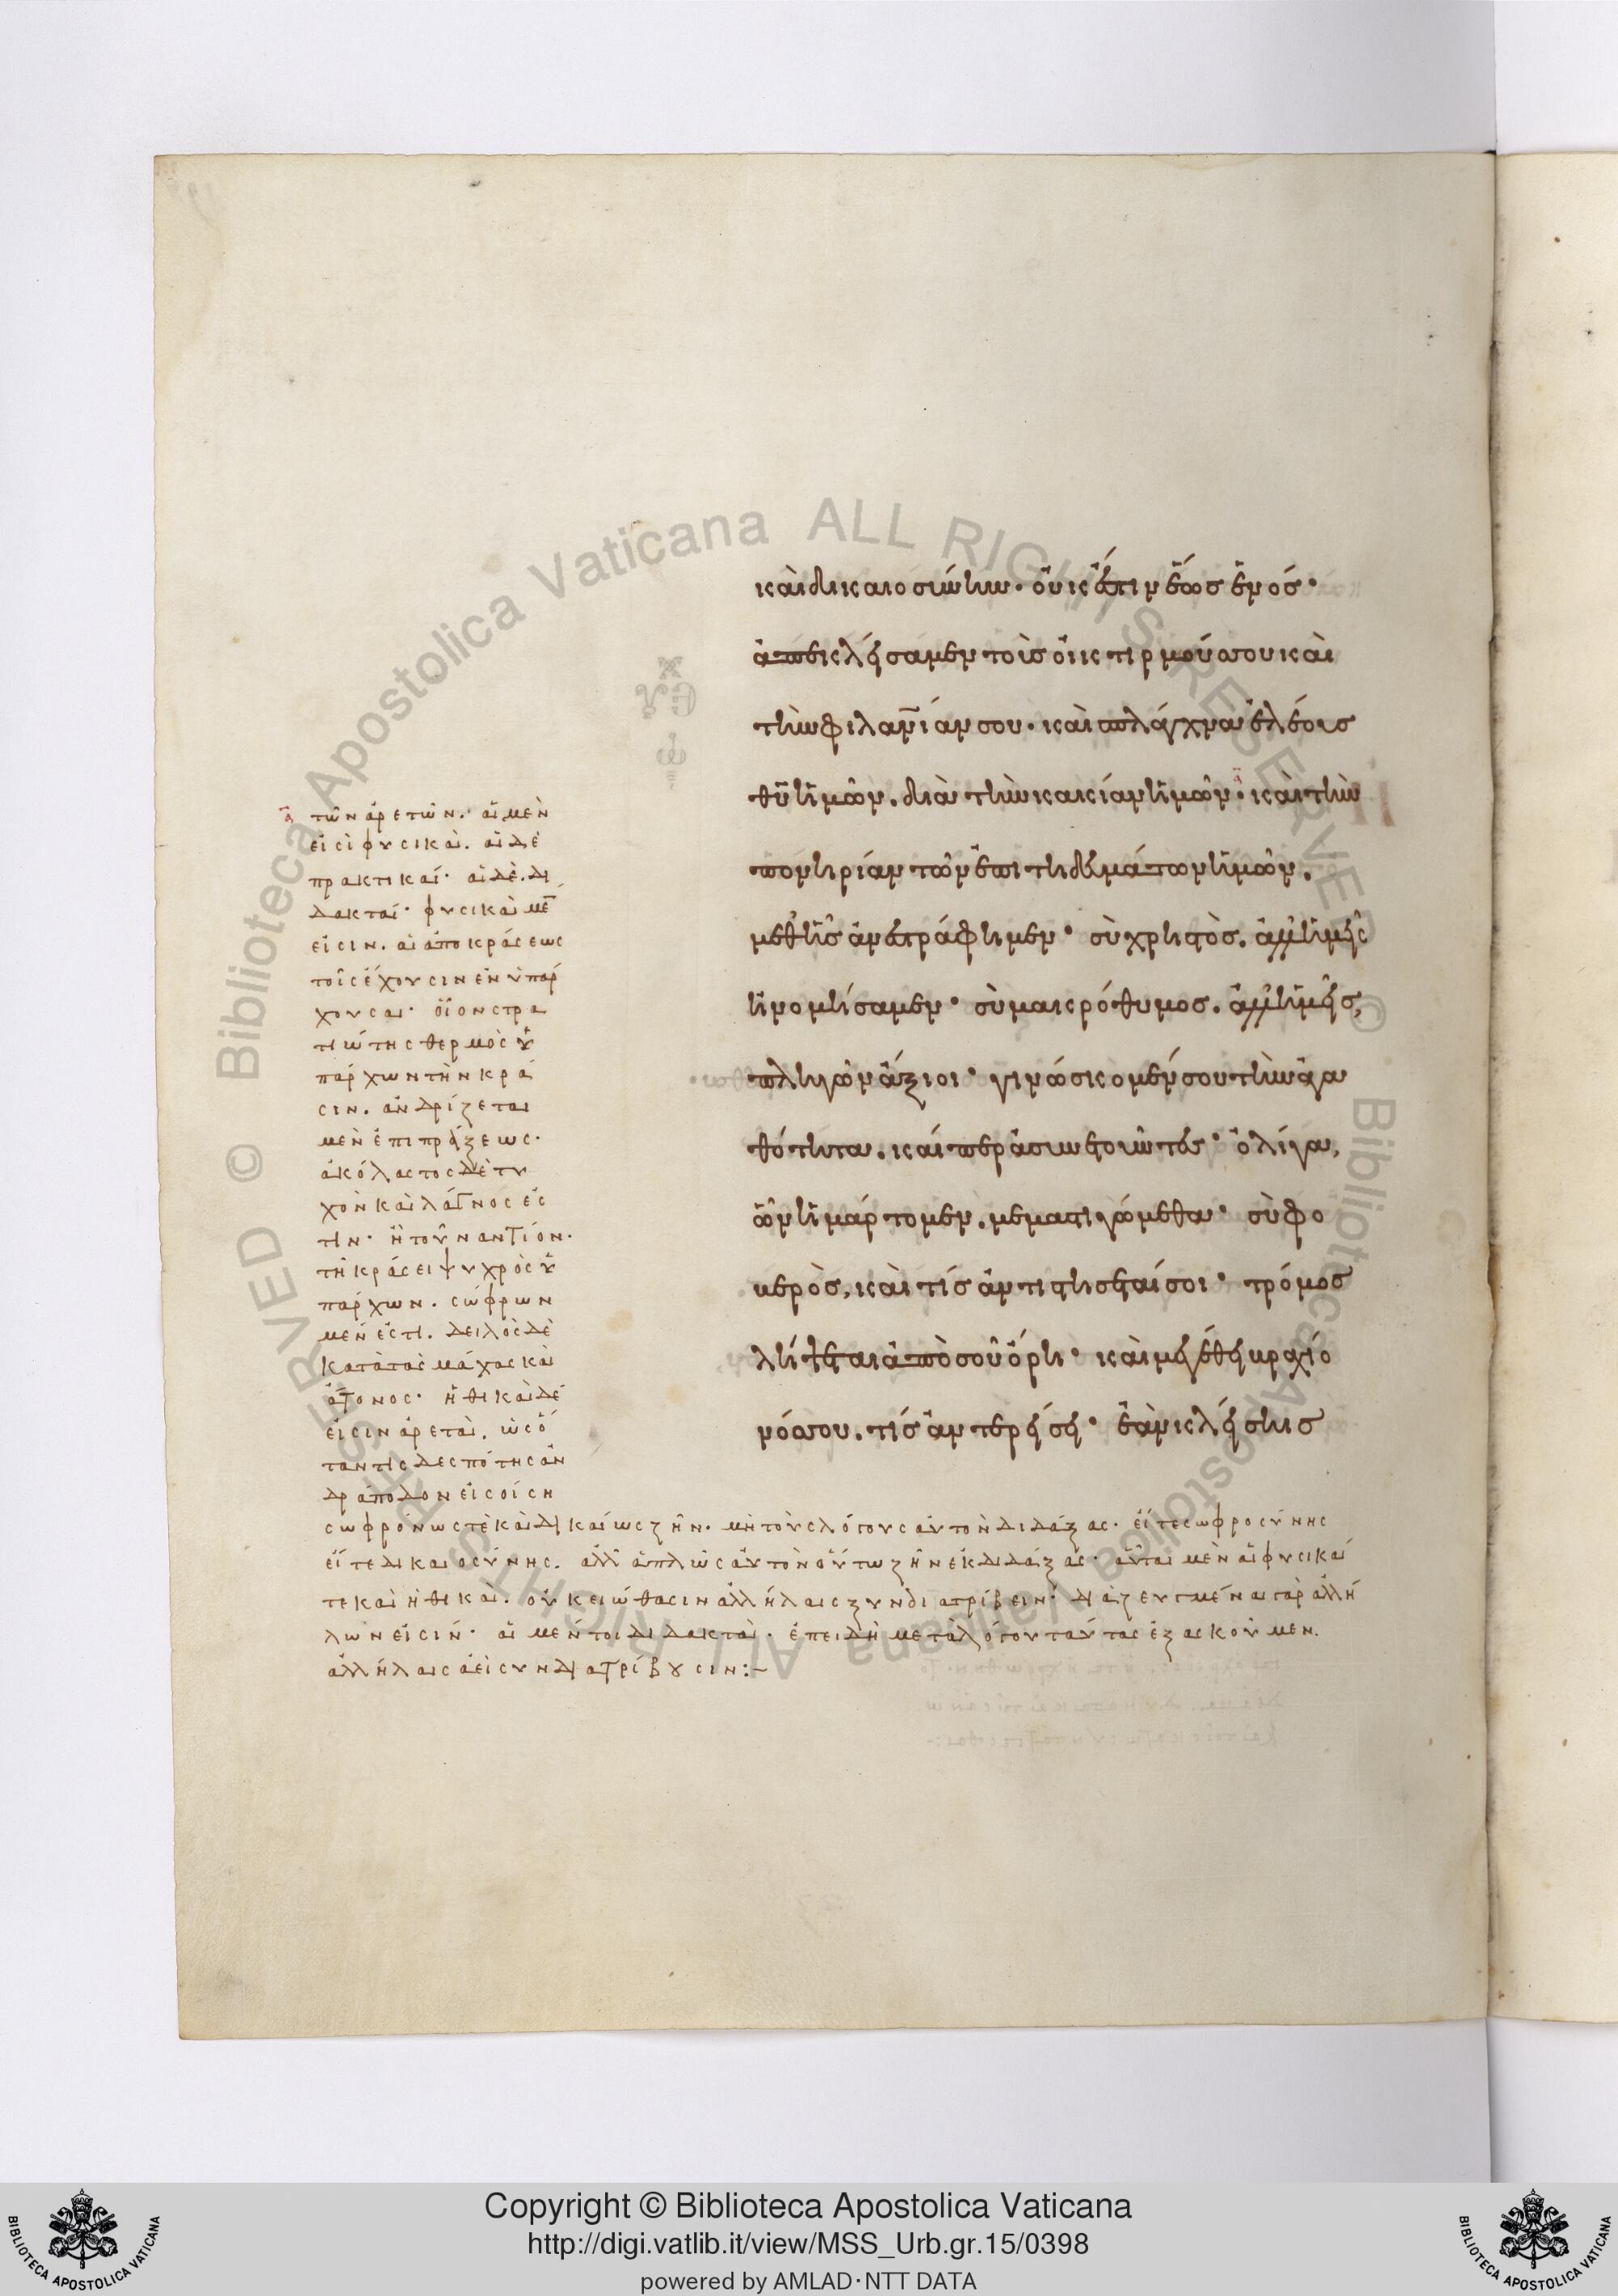 καὶ δικαιοσύνην· οὐκ ἔστιν ἕως ἑνός·
ἀπεκλείσαμεν τοὺς οἰκτιρμούς σου καὶ
τὴν φιλανίαν σου· καὶ σπλάγχνα ἐλέους
θῦ ἡμῶν. διὰ τὴν κακίαν ἡμῶν· καὶ τὴν
πονηρίαν τῶν ἐπιτηδευμάτων ἡμῶν.
μεθ' ἧς ἀνεστράφημεν· σὺ χρηστὸς. ἀλλ' ἡμεῖς
ἠνομήσαμεν· σὺ μακρόθυμος. ἀλλ' ἡμεῖς,
πληγῶν ἄξιοι· γινώσκομέν σου τὴν ἀγα
θότητα. καίπερ ἀσύνετοι ὄντες· ὀλίγα,
ὧν ἡμάρτομεν. μεμαστιγώμεθα· σὺ φο
βερὸς, καὶ τίς ἀντιστήσεταί σοι· τρόμος
λήψεται ἀπὸ σοῦ ὄρη· καὶ μεγέθει βραχίο
νός σου. τίς ἀντερεῖ σοι· ἐὰν κλείσῃς
α τῶν ἀρετῶν· αἱ μὲν
εἰσὶ φυσικαὶ. αἱ δὲ
πρακτικαί· αἱ δὲ. δι
δακταί· φυσικαὶ μὲ
εἰσιν. αἱ ἀπὸ κράσεως
τοῖς ἔχουσιν ἐνυπάρ
χουσαι· οἷον στρα
τιώτης θερμὸς ὑ
πάρχων τὴν κρᾶ
σιν. ἀνδρίζεται
μὲν ἐπὶ πράξεως·
ἀκόλαστος δὲ τυ
χὸν καὶ λάγνος ἐσ
τιν· ἢ τοὐναντίον·
τῆ κράσει ψυχρὸς ὑ
πάρχων. σώφρων
μέν ἐστι. δειλὸς δὲ
κατὰ τὰς μάχας καὶ
ἄτονος· ἠθικαὶ δέ
εἰσιν ἀρεταὶ. ὡς ὅ
ταν τὶς δεσπότης ἀν
δράποδον εἰσοίση
σωφρόνως τὲ καὶ δικαίως ζῆν. μὴ τοὺς λόγους αὐτὸν διδάξας· εἴτε σωφροσύνης
εἴτε δικαιοσύνης. ἀλλ' ἁπλῶς αὐτὸν οὕτω ζῆν ἐκδιδάξας· αὗται μὲν αἱ φυσικαί
τε καὶ ἠθικαὶ. οὐκ εἰώθασιν ἀλλήλαις ξυνδιατρίβειν· διεζευγμέναι γὰρ ἀλλή
λων εἰσίν· αἱ μέντοι διδακταὶ. ἐπειδὴ μετὰ λόγου ταύτας ἐξασκοῦμεν.
ἀλλήλαις ἀεὶ συνδιατρίβουσιν:~
Copyright © Biblioteca Apostolica Vaticana
http://digi.vatlib.it/view/MSS_Urb.gr.15/0398
powered by AMLAD·NTT DATA